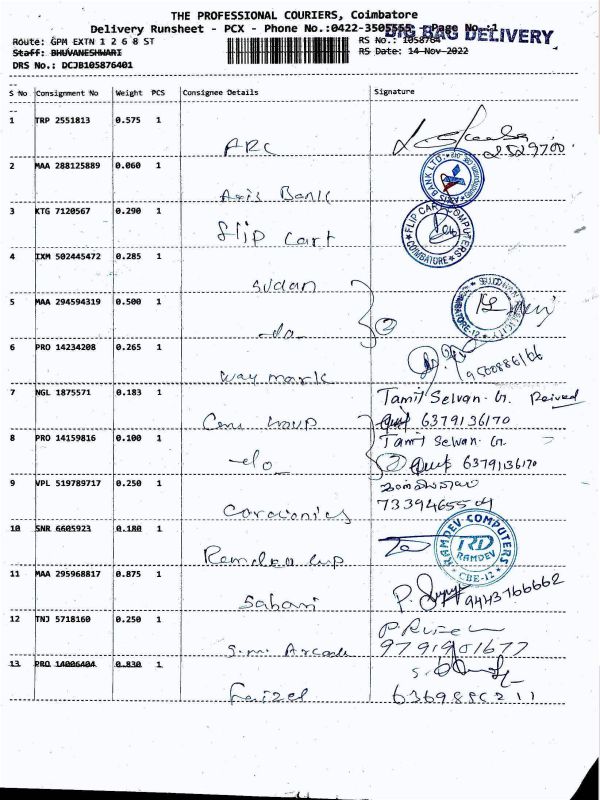 THE PROFESSIONAL COURIERS, Coimbatore
Delivery Runsheet - PCX - Phone No.:0422-3505555 - Page No :1
BIG BAG DELIVERY
Route: GPM EXTN 1 2 6 8 ST
RS No.: 1058764
Staff: BHUVANESHWARI
RS Date: 14 Nov 2022
DRS No.: DCJB105876401
S No Consignment No Weight PCS Consignee Details Signature
1 TRP 2551813 0.575 1 ARC
2 MAA 288125889 0.060 1 Axis Bank
AXIS BANK LTD.
3 KTG 7120567 0.290 1 flip cart
FLIP CART COMPUTERS COIMBATORE
4 IXM 502445472 0.285 1 sudan
5 MAA 294594319 0.500 1 -do- 2
6 PRO 14234208 0.265 1 way mark
7 NGL 1875571 0.183 1
Tamil Selvan. G.
6379136170
8 PRO 14159816 0.100 1 -do- 2
Tamil Selvan. G.
6379136170
9 VPL 519789717 0.250 1
10 SNR 6605923 0.180 1
RAMDEV COMPUTERS RD RAMDEV CBE-12
11 MAA 295968817 0.875 1 Sabari
9443766662
12 TNJ 5718160 0.250 1 S.M. Arcade
9791901677
13 PRO 14006404 0.830 1 Faizel